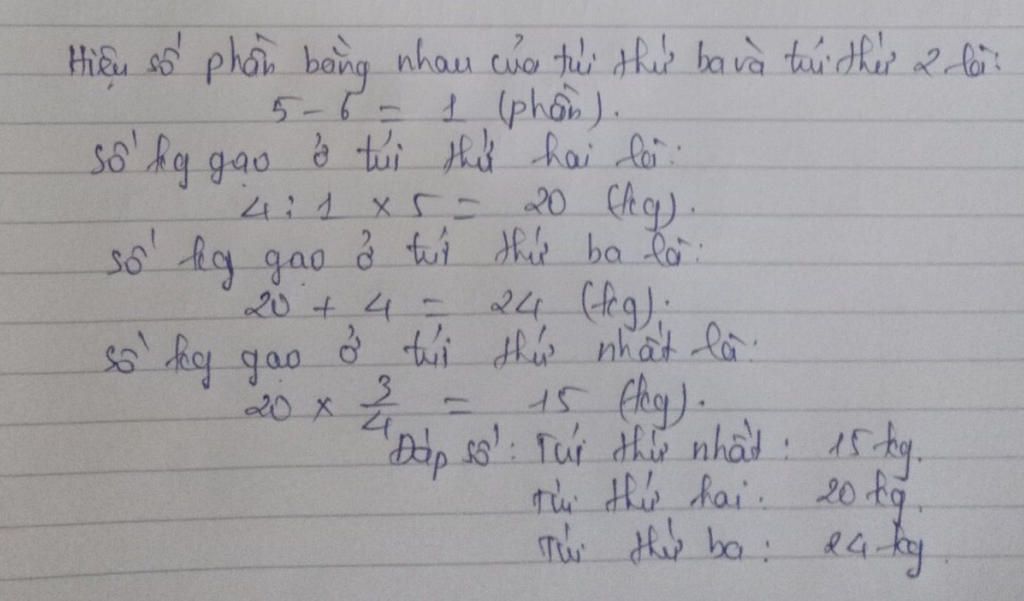 Hiệu số phần bằng nhau của túi thứ ba và túi thứ 2 là:
5 - 6 = 1 (phần).
Số kg gạo ở túi thứ hai là:
4 : 1 × 5 = 20 (kg).
Số kg gạo ở túi thứ ba là:
20 + 4 = 24 (kg).
Số kg gạo ở túi thứ nhất là:
20 × 3/4 = 15 (kg).
Đáp số: Túi thứ nhất: 15 kg.
Túi thứ hai: 20 kg.
Túi thứ ba: 24 kg